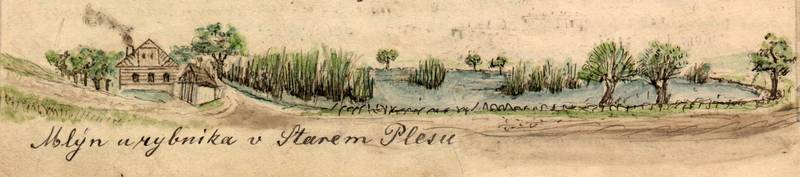 Mlýn u rybnika v Starem Plesu